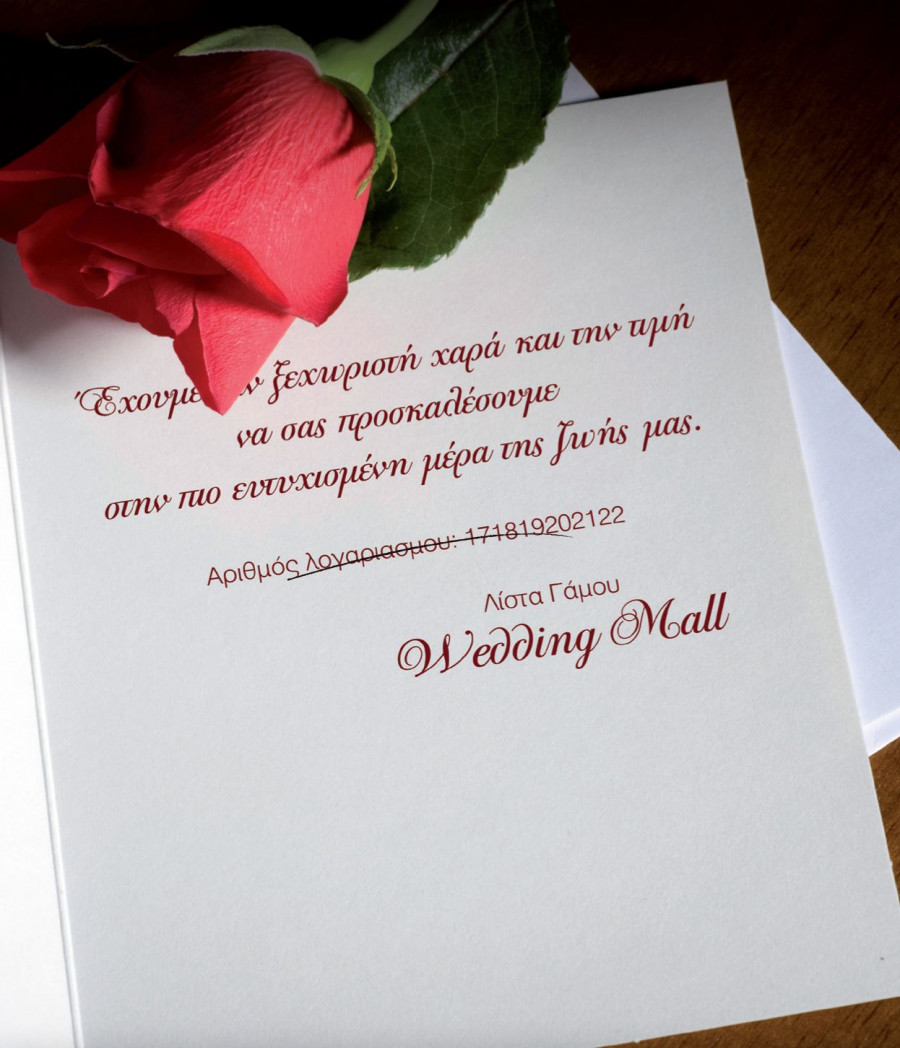 Έχουμε ξεχωριστή χαρά και την τιμή
να σας προσκαλέσουμε
στην πιο ευτυχισμένη μέρα της ζωής μας.
Αριθμός λογαριασμου: 171819202122
Λίστα Γάμου
Wedding Mall